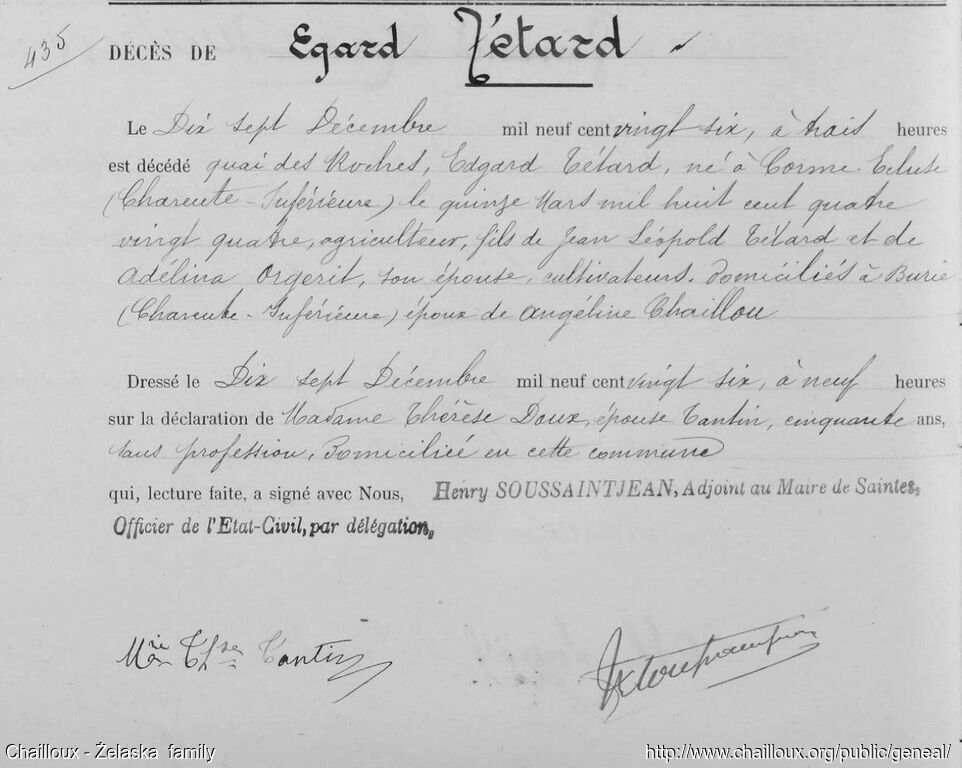 435
DÉCÈS DE Egard Tétard
Le Dix sept Décembre mil neuf cent vingt six, à trois heures
est décédé quai des Roches, Edgard Tétard, né à Corme-Ecluse
(Charente-Inférieure) le quinze Mars mil huit cent quatre
vingt quatre, agriculteur, fils de Jean Léopold Tétard et de
Adélina Orgerit, son épouse, cultivateurs, domiciliés à Burie
(Charente-Inférieure) époux de Angéline Chaillou
Dressé le Dix sept Décembre mil neuf cent vingt six, à neuf heures
sur la déclaration de Madame Thérèse Doux, épouse Tantin, cinquante ans,
sans profession, Domiciliée en cette commune
qui, lecture faite, a signé avec Nous, Henry SOUSSAINTJEAN, Adjoint au Maire de Saintes,
Officier de l'Etat-Civil, par délégation,
Tantin
Chailloux - Żelaska family
http://www.chailloux.org/public/geneal/